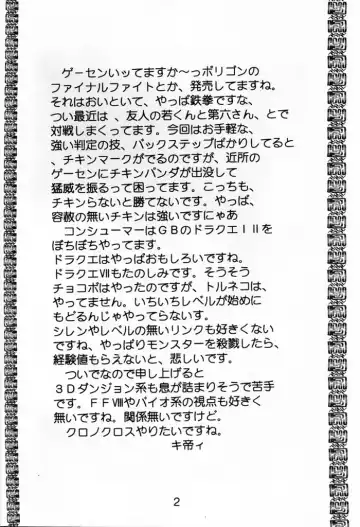 ゲーセンいッてますか~っポリゴンの
ファイナルファイトとか、発売してますね。
それはおいといて、やっぱ鉄拳ですな、
つい最近は、友人の若くんと第六さん、とで
対戦しまくってます。今回はお手軽な、
強い判定の技、バックステップばかりしてると
、チキンマークがでるのですが、近所の
ゲーセンにチキンパンダが出没して
猛威を振るって困ってます。こっちも、
チキンらないと勝てないです。やっぱ、
容赦の無いチキンは強いですにゃあ
コンシューマーはGBのドラクエIIを
ぼちぼちやってます。
ドラクエはやっぱおもしろいですね。
ドラクエⅦもたのしみです。そうそう
チョコボはやったのですが、トルネコは、
やってません。いちいちレベルが始めに
もどるんじゃやってらないす。
シレンやレベルの無いリンクも好きくない
ですね、やっぱりモンスターを殺戮したら、
経験値もらえないと、悲しいです。
ついでなので申し上げると
3Dダンジョン系も息が詰まりそうで苦手
です。FFⅧやバイオ系の視点も好きく
無いですね。関係無いですけど。
クロノクロスやりたいですね。
キ帝ィ
2